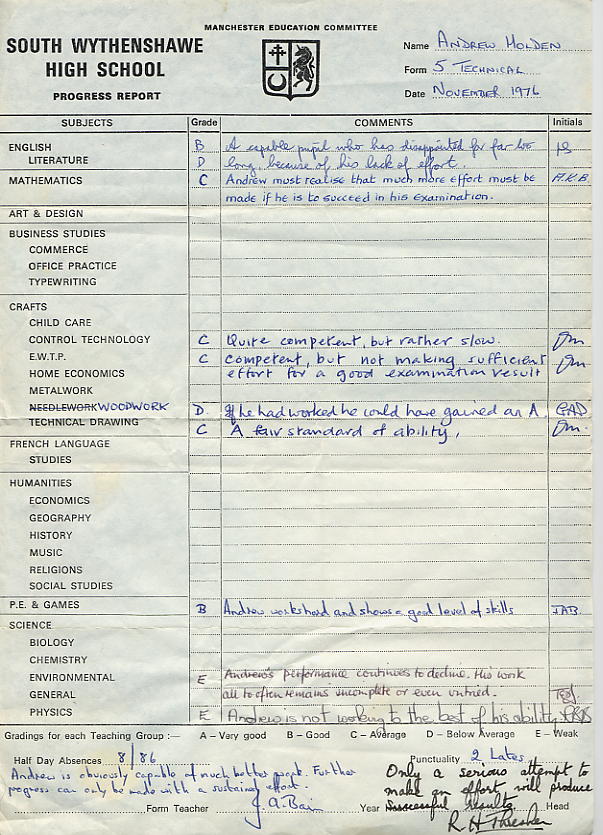 MANCHESTER EDUCATION COMMITTEE
SOUTH WYTHENSHAWE
HIGH SCHOOL
PROGRESS REPORT
Name ANDREW HOLDEN
Form 5 TECHNICAL
Date NOVEMBER 1976
SUBJECTS Grade COMMENTS Initials
ENGLISH B A capable pupil who has disappointed for far too
LITERATURE D long, because of his lack of effort.
MATHEMATICS C Andrew must realise that much more effort must be A.K.B.
made if he is to succeed in his examination.
ART & DESIGN
BUSINESS STUDIES
COMMERCE
OFFICE PRACTICE
TYPEWRITING
CRAFTS
CHILD CARE
CONTROL TECHNOLOGY C Quite competent, but rather slow.
E.W.T.P. C Competent, but not making sufficient
HOME ECONOMICS effort for a good examination result
METALWORK
NEEDLEWORK WOODWORK D. If he had worked he could have gained an A. GAD
TECHNICAL DRAWING C A fair standard of ability,
FRENCH LANGUAGE
STUDIES
HUMANITIES
ECONOMICS
GEOGRAPHY
HISTORY
MUSIC
RELIGIONS
SOCIAL STUDIES
P.E. & GAMES B Andrew works hard and shows a good level of skills JAB.
SCIENCE
BIOLOGY
CHEMISTRY
ENVIRONMENTAL E Andrew's performance continues to decline. His work
GENERAL all to often remains incomplete or even untried.
PHYSICS E Andrew is not working to the best of his ability.
Gradings for each Teaching Group :— A – Very good B – Good C – Average D – Below Average E – Weak
Half Day Absences 8/86 Punctuality 2 Lates
Andrew is obviously capable of much better work. Further
progress can only be made with a sustained effort.
Form Teacher J. A. Bain
Only a serious attempt to
make an effort will produce
Year Successful results. Head
R H Thresher